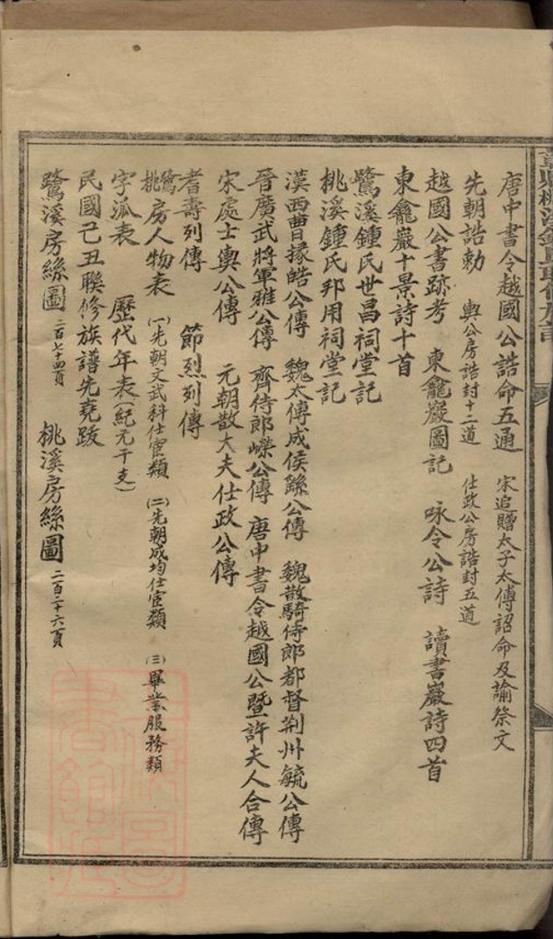 唐中書令越國公誥命五通　宋追贈太子太傅詔命及諭祭文
先朝誥勅　輿公房誥封十二道　仕政公房誥封五道
越國公書跡考　東龕巖圖記　咏令公詩　讀書巖詩四首
東龕巖十景詩十首
鷺溪鍾氏世昌祠堂記
桃溪鍾氏邦用祠堂記
漢西曹掾皓公傳　魏太傅成侯繇公傳　魏散騎侍郎都督荆州毓公傳
晉廣武將軍雅公傳　齊侍郎嶸公傳　唐中書令越國公暨許夫人合傳
宋處士輿公傳　元朝散大夫仕政公傳
耆壽列傳　節烈列傳
鷺桃房人物表　(一)先朝文武科仕宦類　(二)先朝成均仕宦類　(三)畢業服務類
字派表　歷代年表(紀元干支)
民國己丑聯修族譜先堯跋
鷺溪房絲圖　二百七十四頁　桃溪房絲圖　二百二十六頁